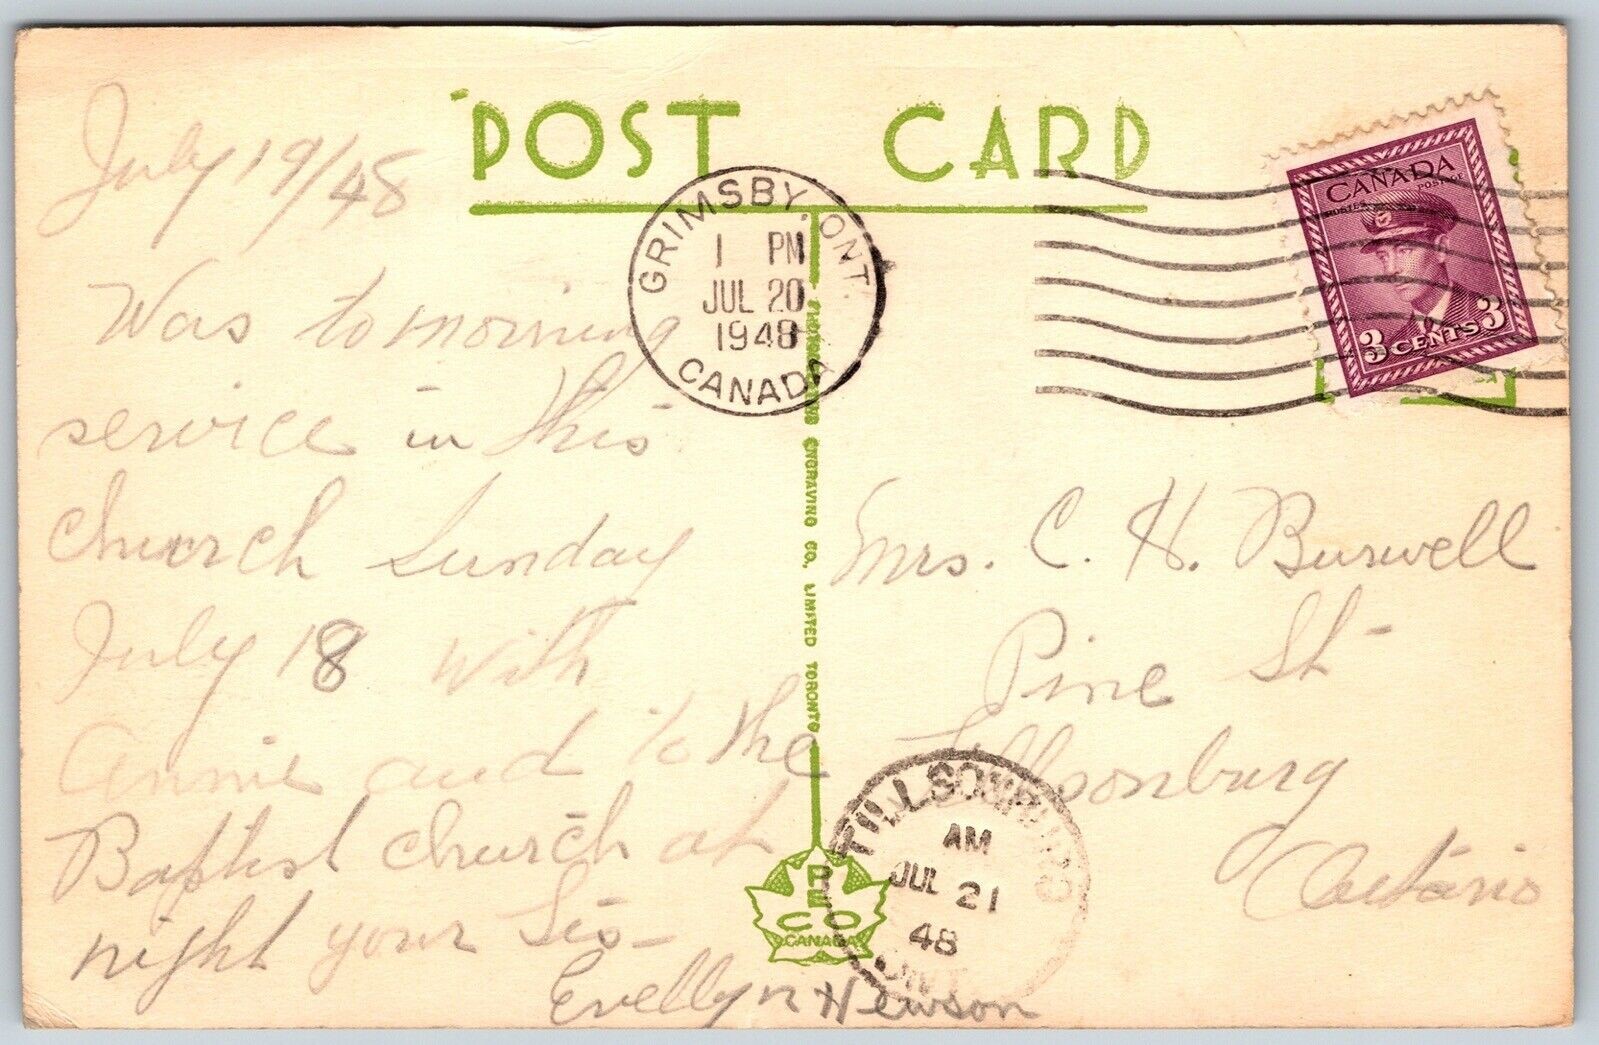 POST CARD
July 19/48
Was to morning
service in this
church Sunday
July 18 with
Annie and to the
Baptist church at
night your Sis—
Evellyn Hewson
GRIMSBY, ONT.
1 PM
JUL 20
1948
CANADA
CANADA
POSTES POSTAGE
3 CENTS 3
PHOTOGELATINE ENGRAVING CO., LIMITED TORONTO
Mrs. C. H. Burwell
Pine St
Tillsonburg
Ontario
TILLSONBURG
AM
JUL 21
48
ONT.
PECO
CANADA